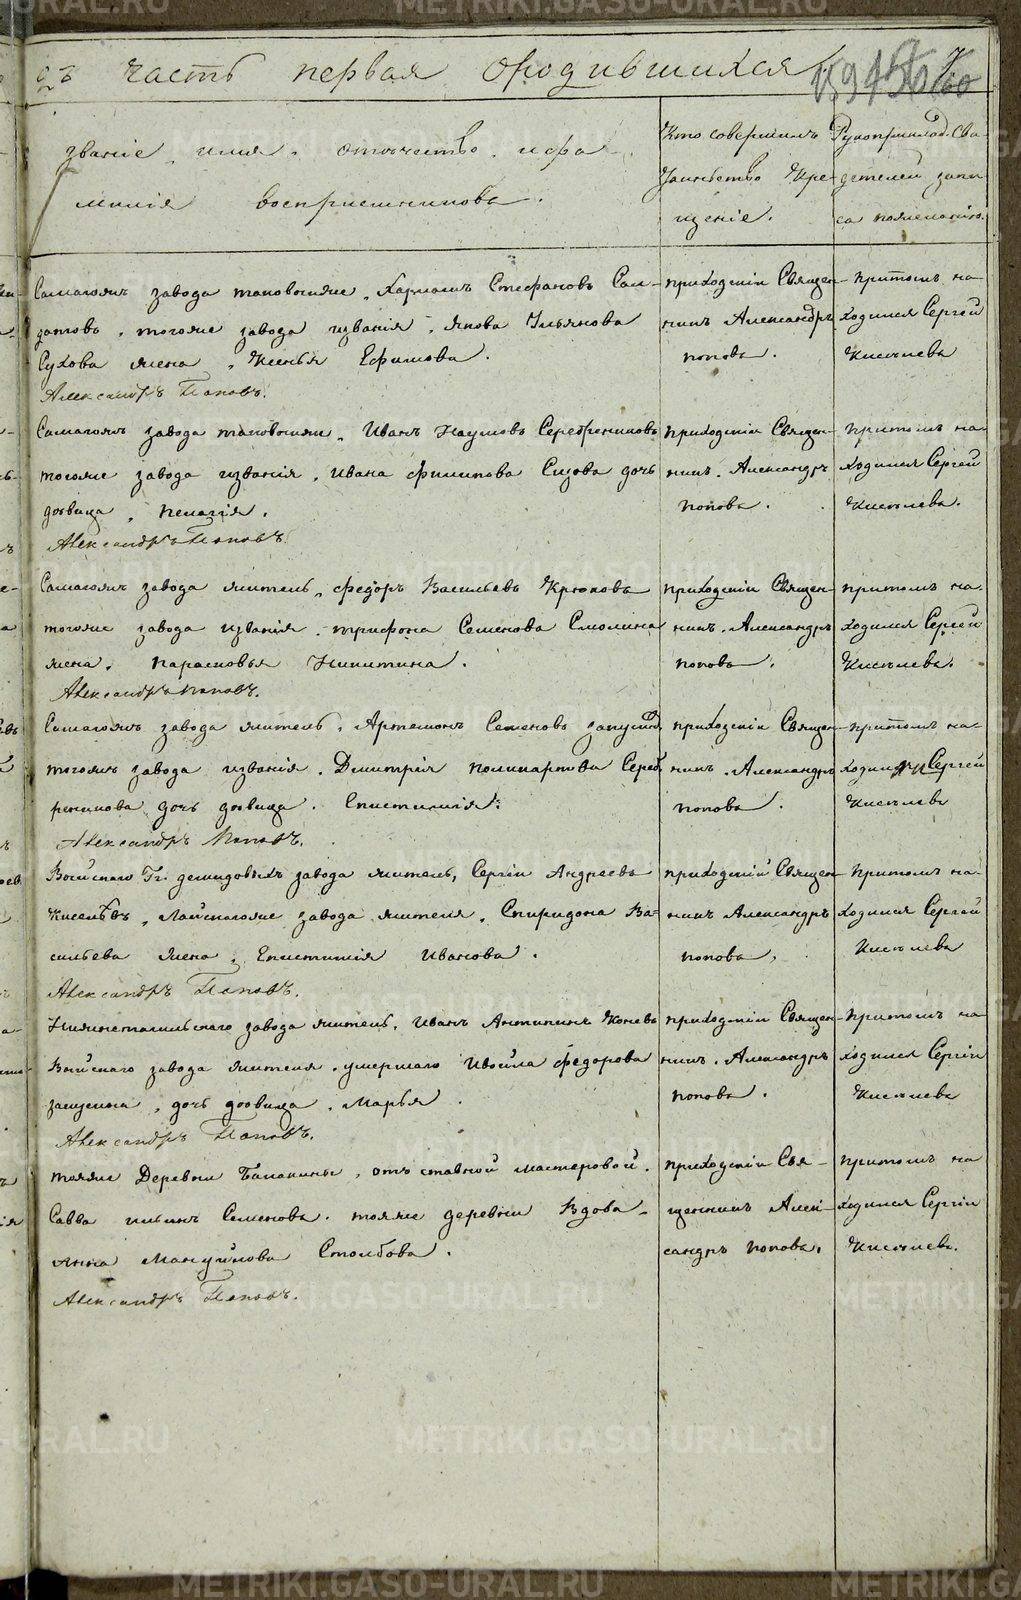 часть первая ородившихся
званіе, имя, отъчество, ифа-
милія воспріемниковъ.
Кто совершилъ
Таинъство Кре-
щеніе.
Рукоприклад. Сви-
детелей запи-
са пожеланію.
завода таковоиже, Харламъ Стефановъ Сол-
датовъ, тогоже завода изванія, якова Ульянова
Сухова жена, Ксенья Ефимова.
Александръ Поповъ.
приходскій Священ-
никъ Александръ
поповъ.
притомъ на-
ходился Сергей
Киселевъ
завода таковоиже, Иванъ Наумовъ Серебрениковъ
тогоже завода изванія, ивана филипова Сизова дочь
девица, пелагія.
Александръ Поповъ.
приходскій Священ-
никъ. Александръ
поповъ.
притомъ на-
ходился Сергей
Киселевъ.
завода житель, федоръ Васильевъ Крюковъ
тогоже завода изванія, трифона Семенова Смолина
жена, парасковья Никитина.
Александръ поповъ.
приходскій Священ-
никъ. Александръ
поповъ.
притомъ на-
ходился Сергей
Киселевъ.
завода житель, Артемонъ Семеновъ
завода изванія. Дмитрія поликарпова Сереб
рякова дочь девица. Епистимія.
Александръ Поповъ.
приходскій Священ-
никъ. Александръ
поповъ.
притомъ на-
Сергей
Киселевъ
Выйскаго Гг. демидовыхъ завода житель, Сергій Андреевъ
Киселевъ, Лайскагоже завода жителя, Спиридона Ва-
сильева жена, Епистимія Иванова.
Александръ Поповъ.
приходскій Священ-
никъ Александръ
поповъ,
Притомъ на-
ходился Сергей
Киселевъ
Нижнетагильскаго завода житель, Иванъ Антипинъ Коневъ
Выйскаго завода жителя, умершаго Ивойла федорова
дочь девица, Марья.
Александръ Поповъ.
приходскій Священ-
никъ. Александръ
поповъ.
Притомъ на
ходился Сергій
Киселевъ
тояже Деревни Балакины, отъставной мастеровой.
Савва ильинъ Семеновъ. тояже деревни Вдова
анна Мануйлова Столбова.
Александръ Поповъ.
приходскій Свя-
щенникъ Алек-
сандръ поповъ.
притомъ на
ходился Сергій
Киселевъ.